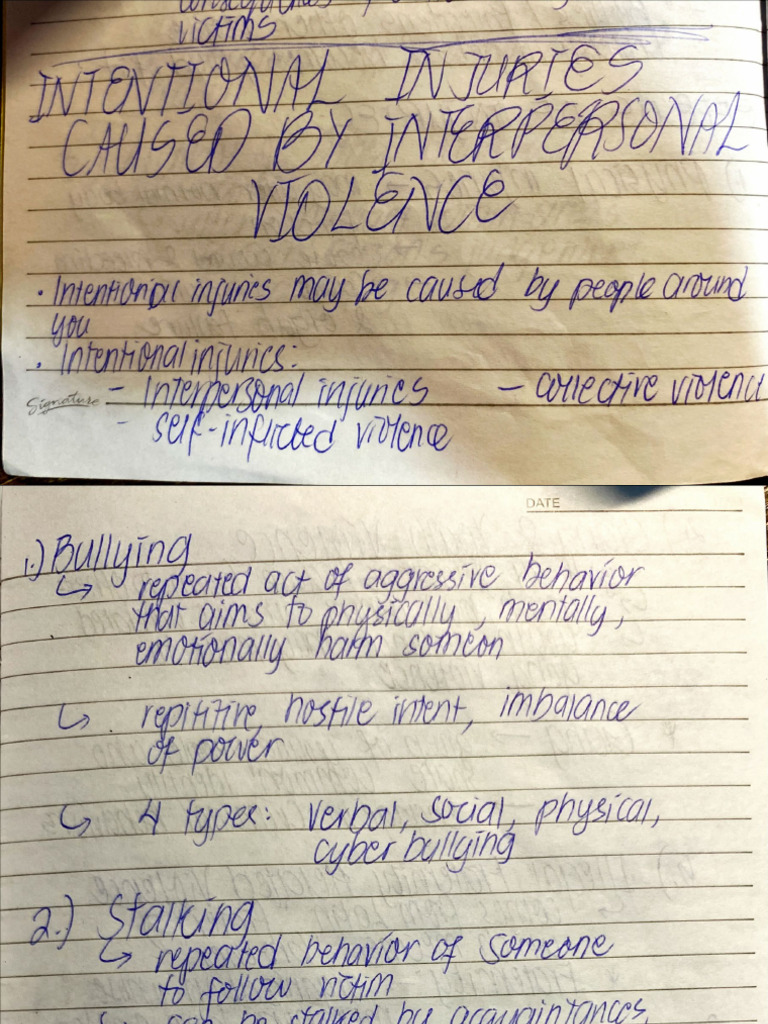 victims
INTENTIONAL INJURIES
CAUSED BY INTERPERSONAL
VIOLENCE
• Intentional injuries may be caused by people around
you
• Intentional injuries:
Signature - Interpersonal injuries - collective violence
- self-inflicted violence
DATE
1.) Bullying
↳ repeated act of aggressive behavior
that aims to physically, mentally,
emotionally harm someon
↳ repititive, hostile intent, imbalance
of power
↳ 4 types: verbal, social, physical,
cyber bullying
2.) Stalking
↳ repeated behavior of someone
to follow victim
↳ can be stalked by acquaintances,